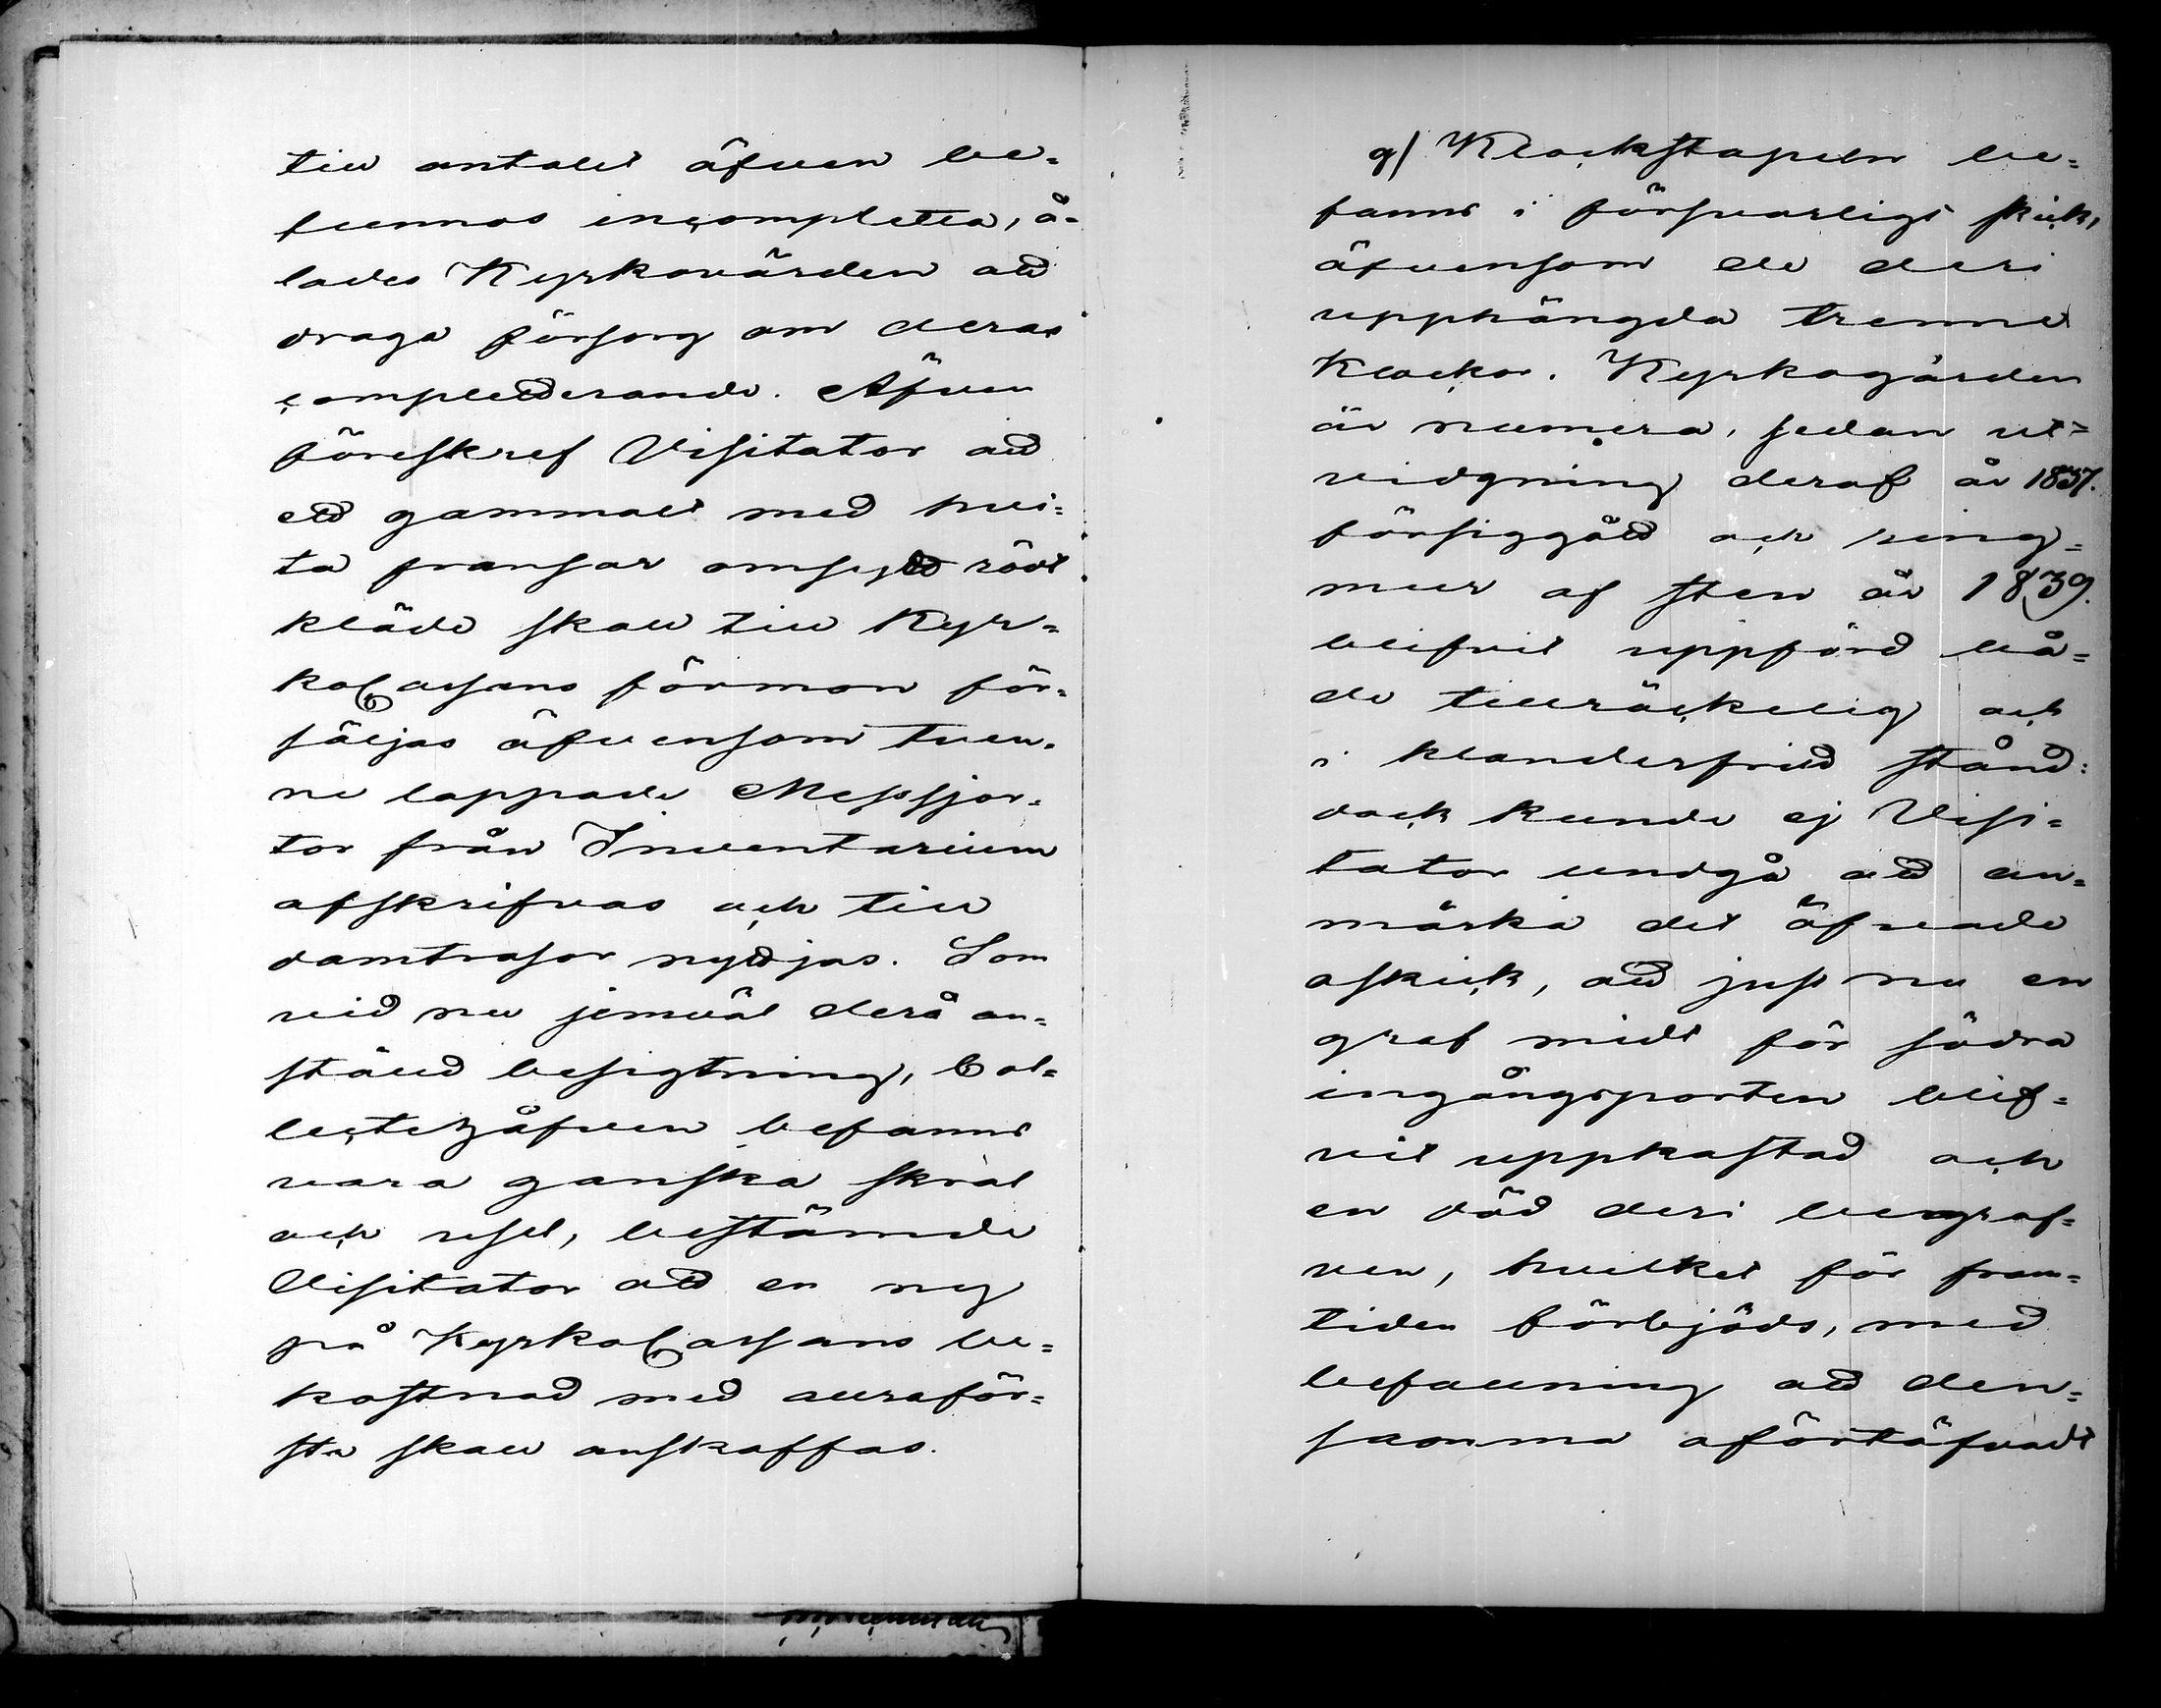 till antalet äfven be=
funnos incompletta, å=
lades Kyrkovärden att
draga försorg om deras
completterande. Äfven
föreskref Visitator att
ett gammalt med hvi=
ta fransar omsydt rödt
kläde skall till Kyr=
koCassans förmon för=
säljas äfvensom tven=
ne lappade Messsjor=
tor från Inventarium
afskrifvas och till
damtrasor nyttjas. Som
vid nu jemväl derå an=
ställd besigtning, Col=
lectehåfven befanns
vara ganska skral
och usel, bestämde
Visitator att en ny
på KyrkoCassans be=
kostnad med aldraför=
sta skall anskaffas.
g) Klockstapeln be=
fanns i försvarligt skick,
äfvensom de deri
upphängda trenne
Klockor. Kyrkogården
är numera, sedan ut=
vidgning deraf år 1837.
försiggått och ring=
mur af sten år 1839.
blifvit uppförd bå=
de tillräckelig och
i klanderfritt stånd:
dock kunde ej Visi=
tator undgå att an=
märka det öfvade
oskick, att just nu en
graf midt för södra
ingångsporten blif=
vit uppkastad och
en död deri begraf=
ven, hvilket för fram=
tiden förbjöds, med
befallning att den=
samma oförtöfvadt